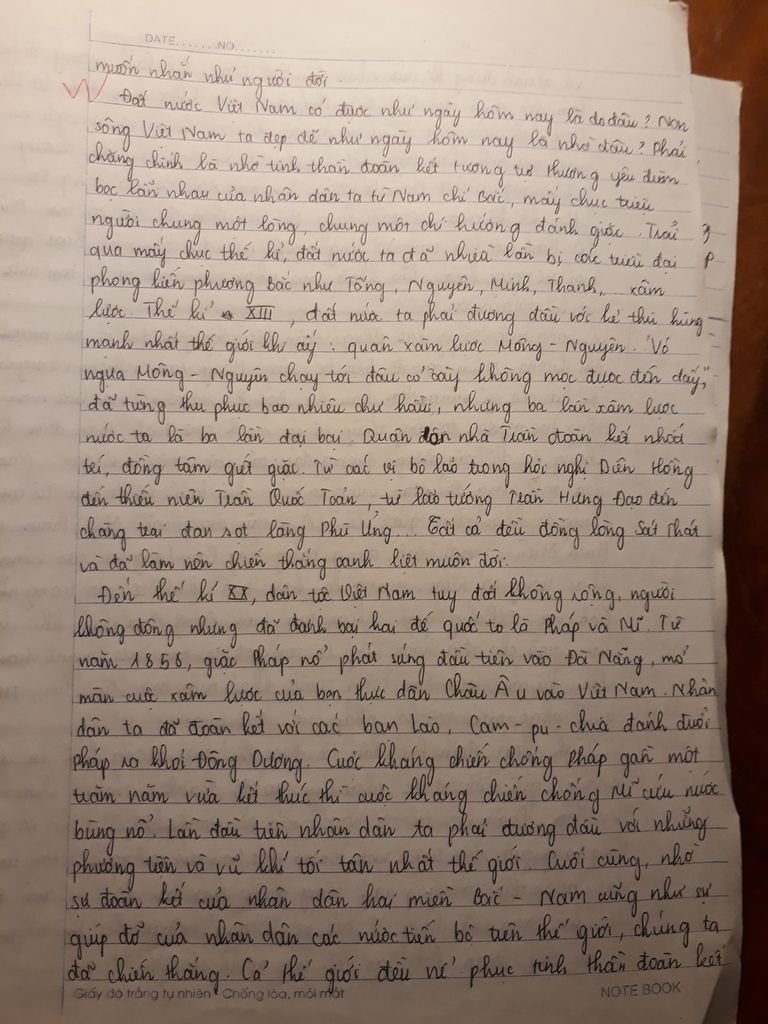 DATE.......NO.......
muốn nhắn như người đời.
Đất nước Việt Nam có được như ngày hôm nay là do đâu? Non
sông Việt Nam ta đẹp đẽ như ngày hôm nay là nhờ đâu? Phải
chăng chính là nhờ tinh thần đoàn kết tương tự thương yêu đùm
bọc lẫn nhau của nhân dân ta từ Nam chí Bắc, mấy chục triệu
người chung một lòng, chung một chí hướng đánh giặc. Trải
qua mấy chục thế kỉ, đất nước ta đã nhiều lần bị các triều đại
phong kiến phương Bắc như Tống, Nguyên, Minh, Thanh,... xâm
lược. Thế kỉ XIII, đất nước ta phải đương đầu với kẻ thù hùng
mạnh nhất thế giới khi ấy: quân xâm lược Mông - Nguyên. "Vó
ngựa Mông - Nguyên chạy tới đâu cỏ cây không mọc được đến đấy,"
đã từng thu phục bao nhiêu chư hầu, nhưng ba lần xâm lược
nước ta là ba lần đại bại. Quân dân nhà Trần đoàn kết nhất
trí, đồng tâm giết giặc. Từ các vị bô lão trong hội nghị Diên Hồng
đến thiếu niên Trần Quốc Toản, từ lão tướng Trần Hưng Đạo đến
chàng trai đan sọt làng Phù Ủng... Tất cả đều đồng lòng Sát Thát
và đã làm nên chiến thắng oanh liệt muôn đời.
Đến thế kỉ XX, dân tộc Việt Nam tuy đất không rộng, người
không đông nhưng đã đánh bại hai đế quốc to là Pháp và Mĩ. Từ
năm 1858, giặc Pháp nổ phát súng đầu tiên vào Đà Nẵng, mở
màn cuộc xâm lược của bọn thực dân Châu Âu vào Việt Nam. Nhân
dân ta đã đoàn kết với các bạn Lào, Cam-pu-chia đánh đuổi
Pháp ra khỏi Đông Dương. Cuộc kháng chiến chống Pháp gần một
trăm năm vừa kết thúc thì cuộc kháng chiến chống Mĩ cứu nước
bùng nổ. Lần đầu tiên nhân dân ta phải đương đầu với những
phương tiện và vũ khí tối tân nhất thế giới. Cuối cùng, nhờ
sự đoàn kết của nhân dân hai miền Bắc - Nam cũng như sự
giúp đỡ của nhân dân các nước tiến bộ trên thế giới, chúng ta
đã chiến thắng. Cả thế giới đều nể phục tinh thần đoàn kết
Giấy độ trắng tự nhiên - Chống lóa, mỏi mắt NOTE BOOK